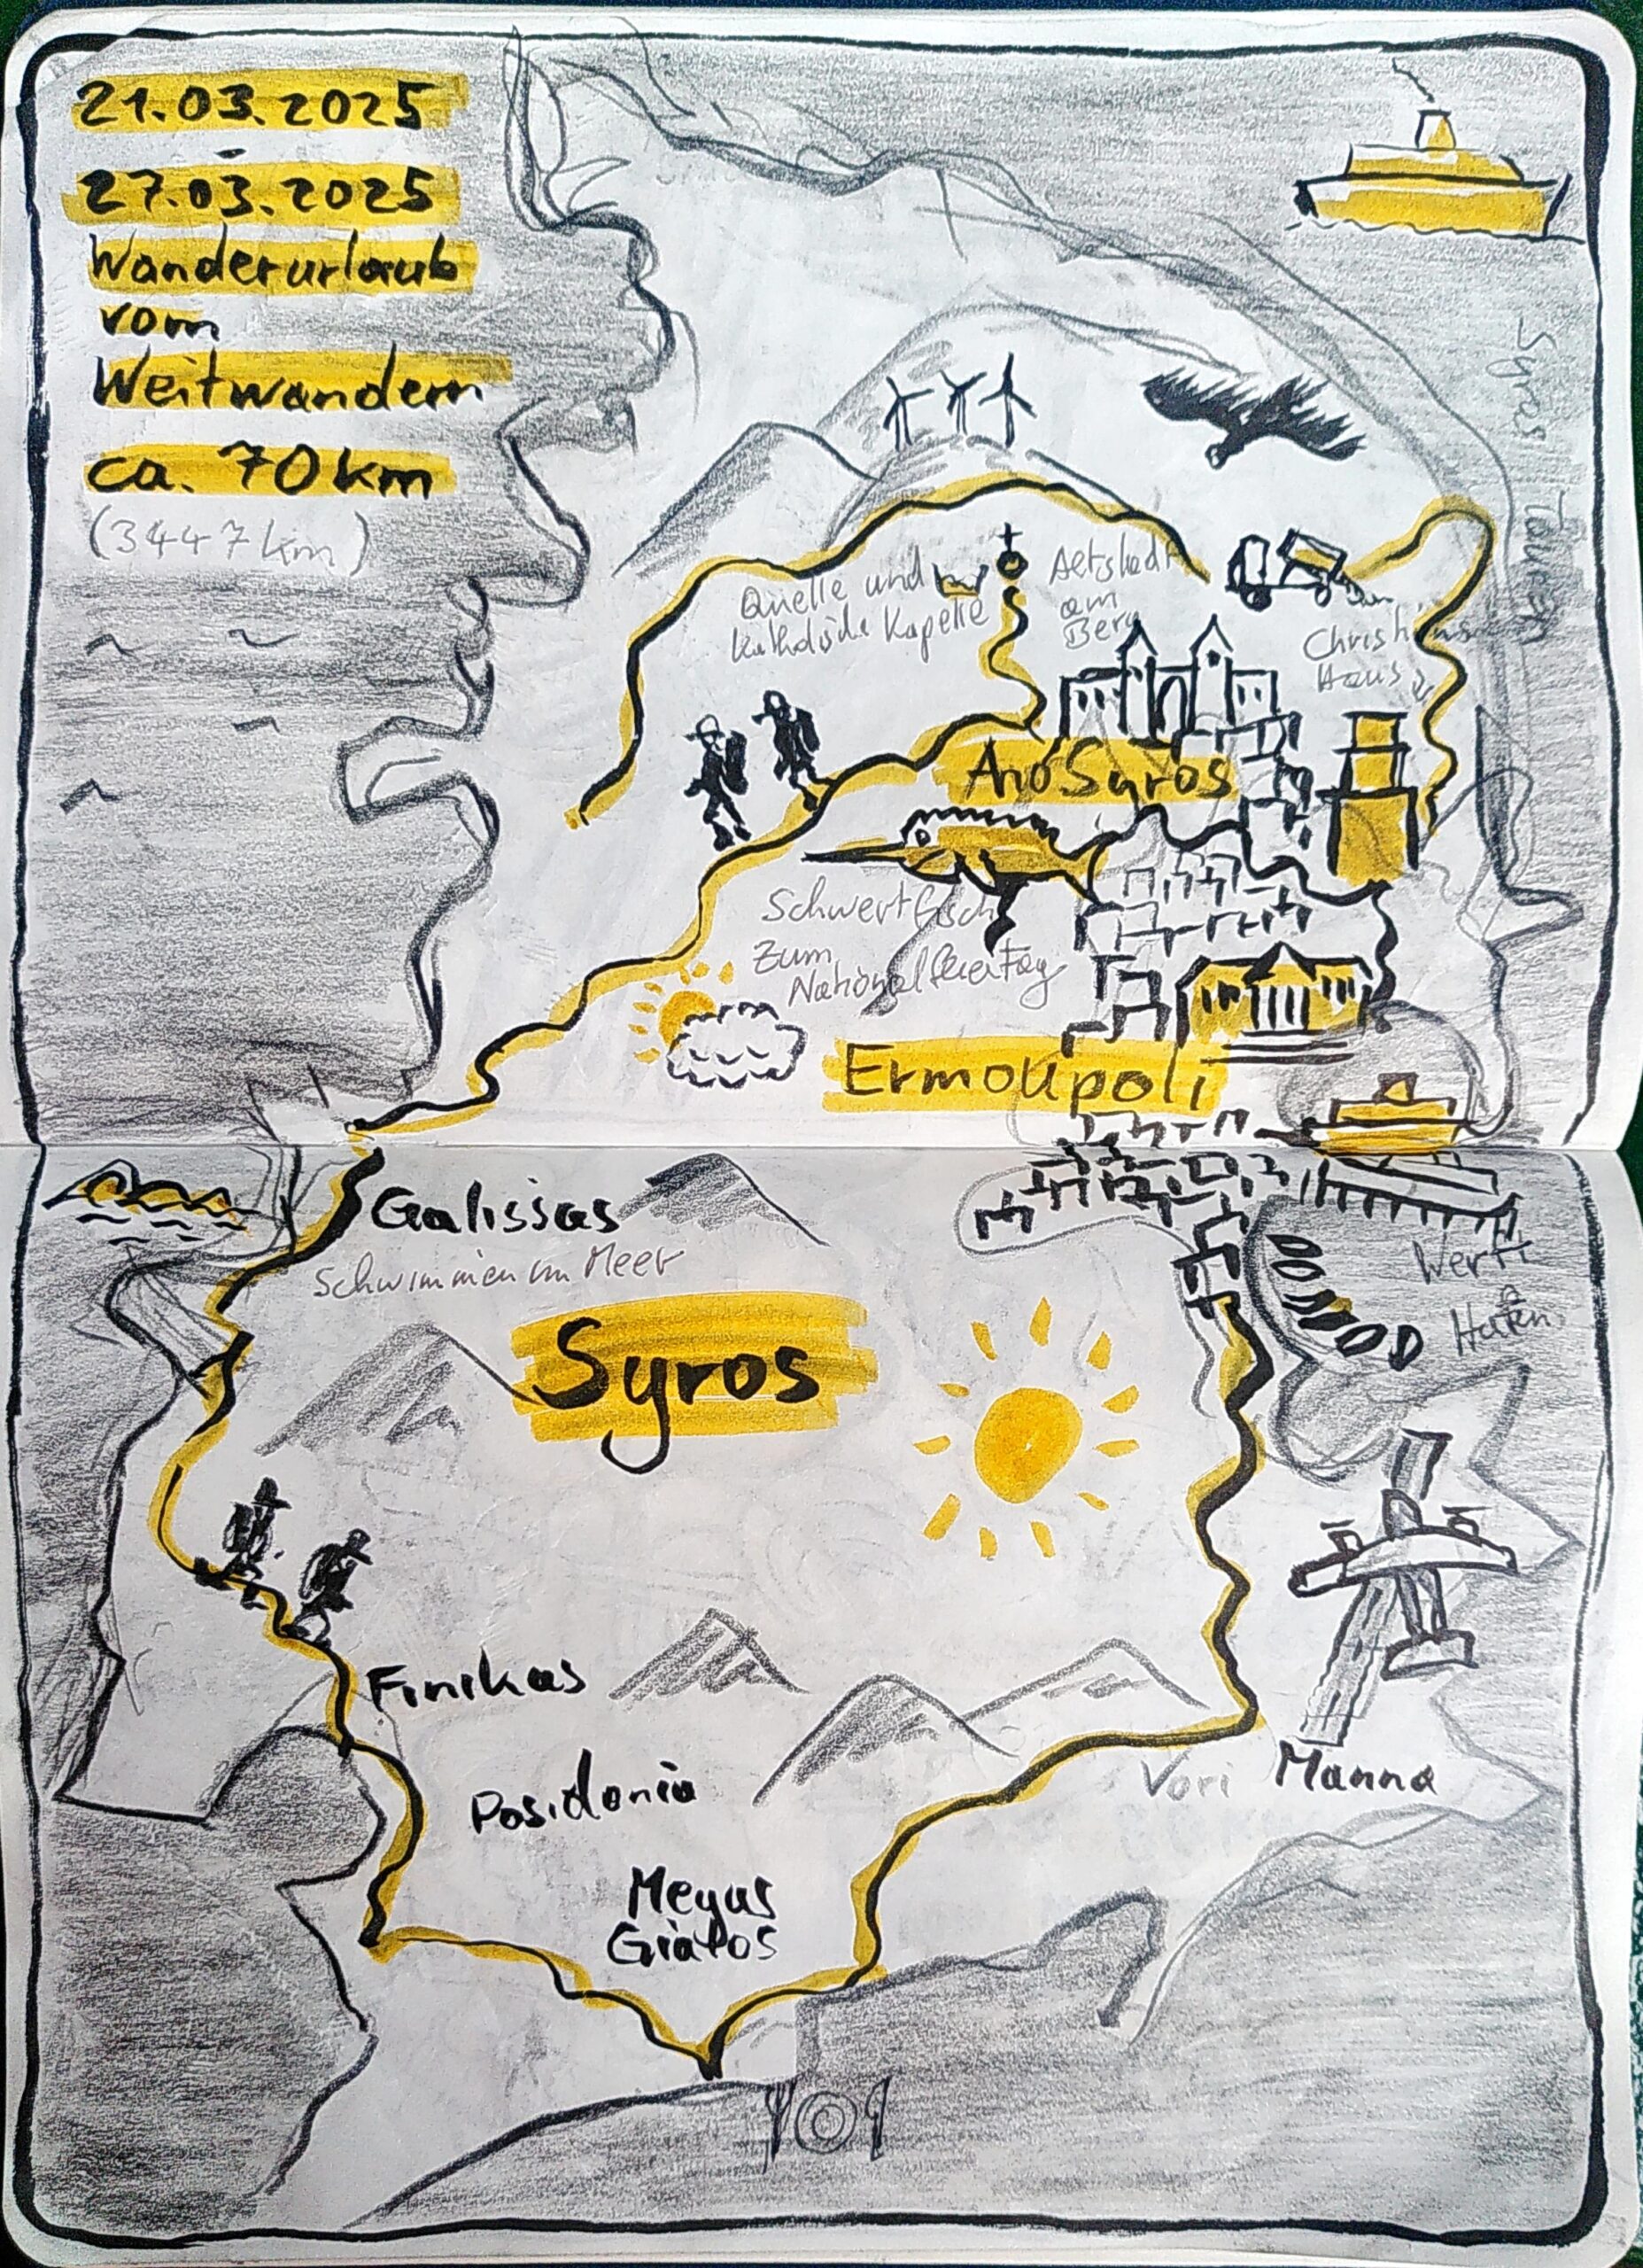 21.03.2025
-
27.03.2025
Wanderurlaub
vom
Weitwandern
ca. 70 km
(3447 km)
Syros Touren
Quelle und
katholische Kapelle
Altstadt
am
Berg
Christians
Haus
Ano Syros
Schwertfisch
zum
Nationalfeiertag
Ermoupoli
Galissas
Schwimmen im Meer
Werft
Hafen
Syros
Finikas
Posidonia
Vari
Manna
Megas
Gialos